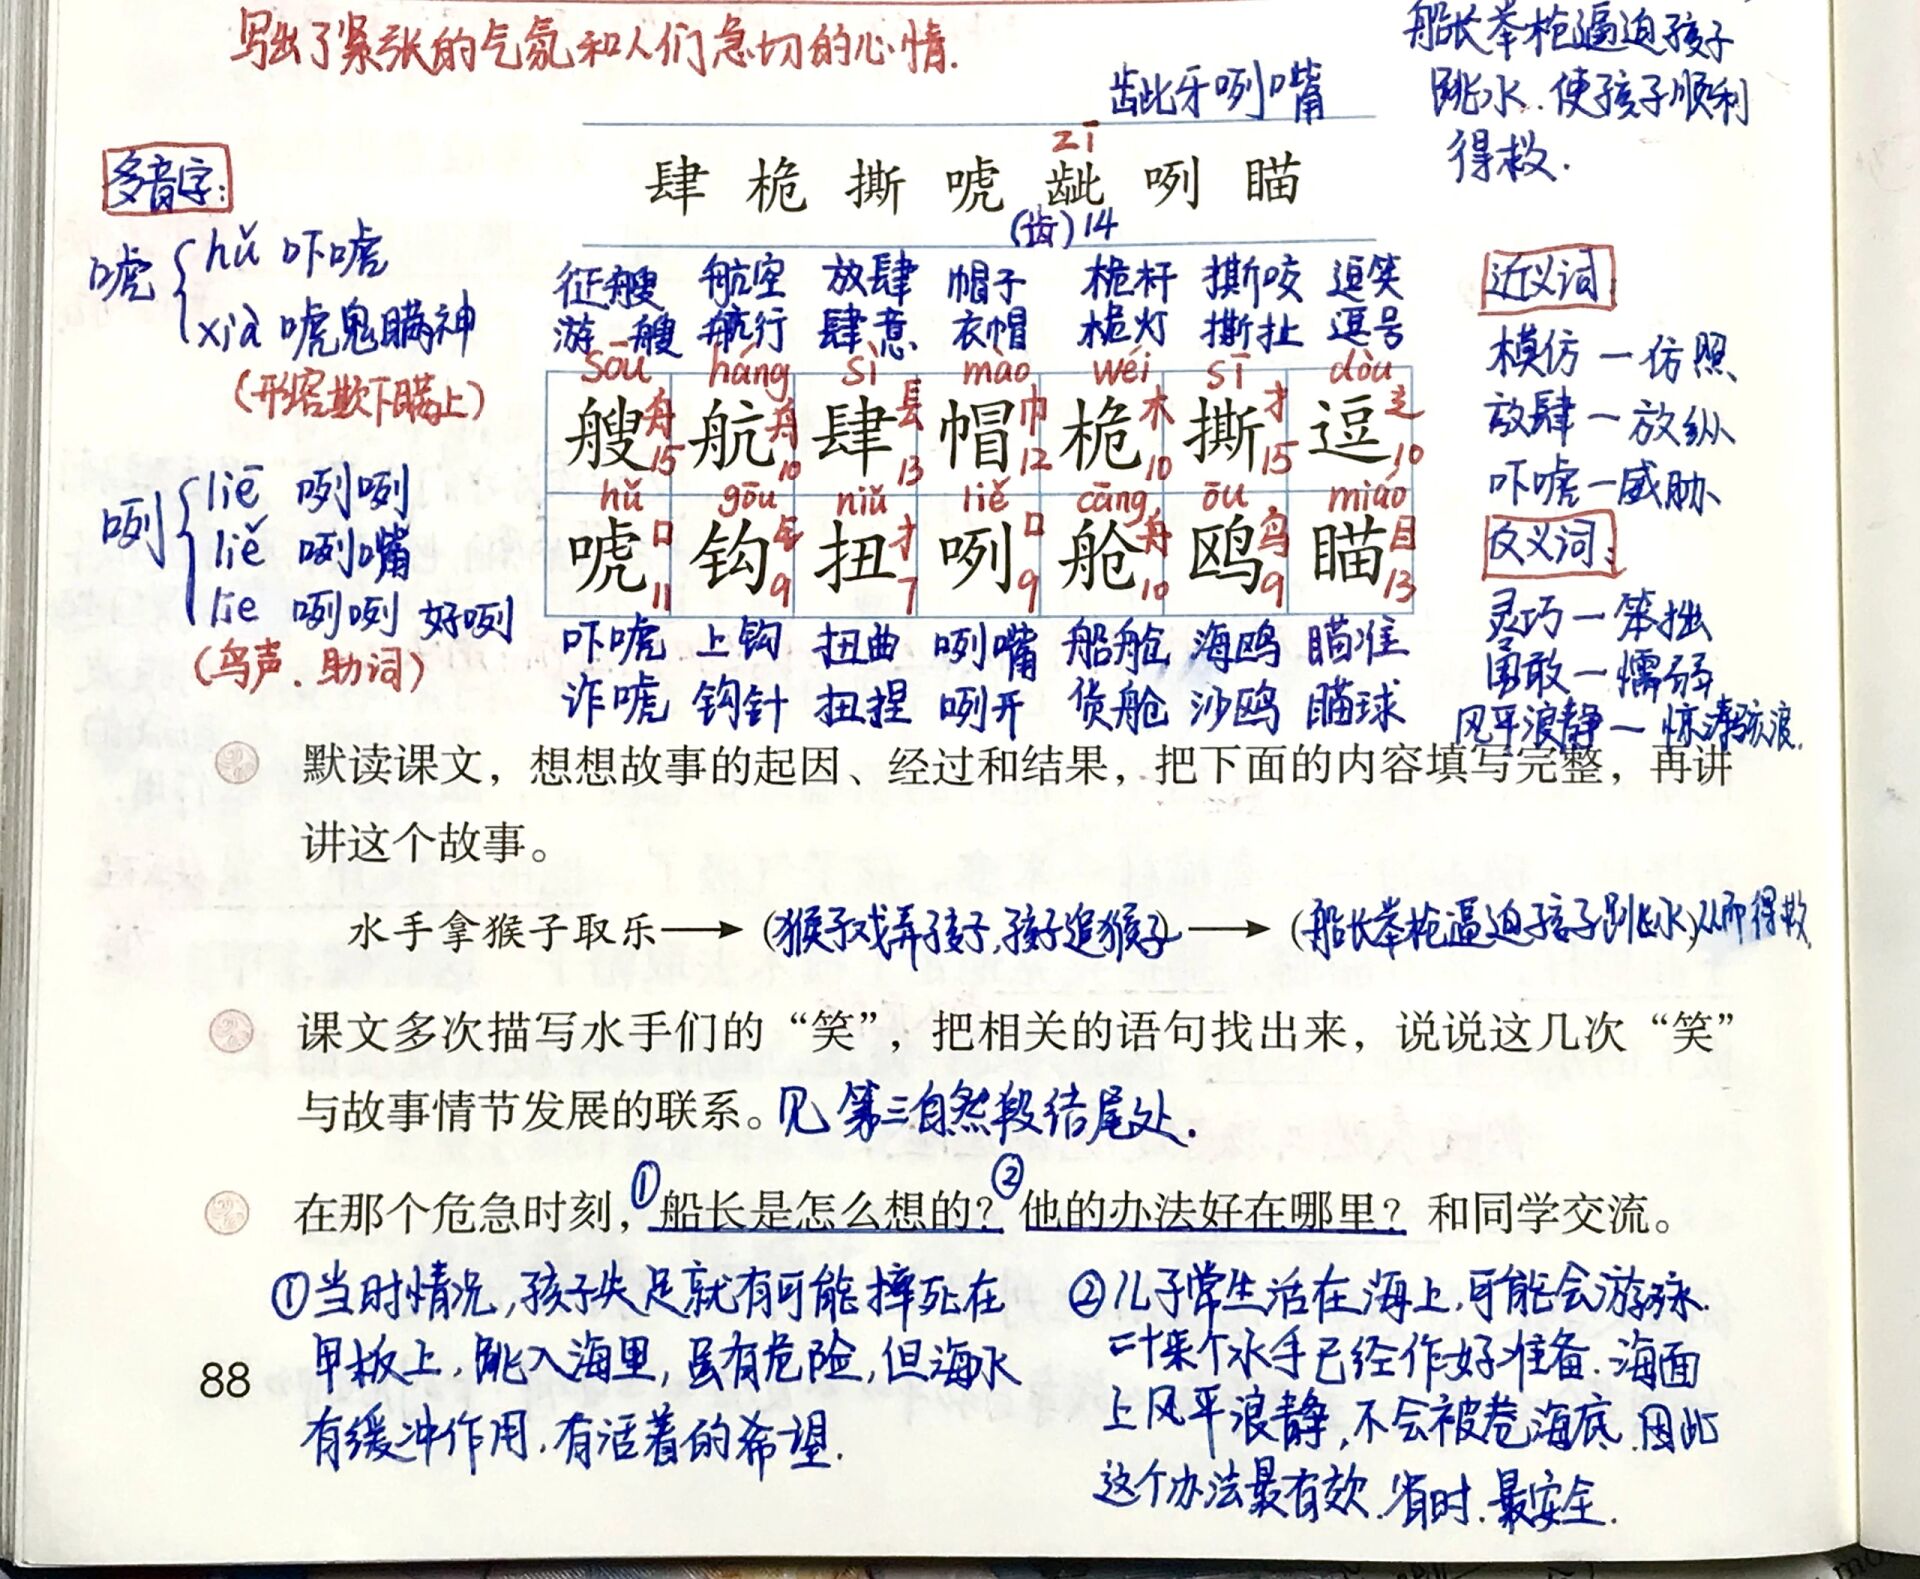 写出了紧张的气氛和人们急切的心情.
船长举枪逼迫孩子
跳水.使孩子顺利
得救.
龇牙咧嘴
zī
肆 桅 撕 唬 龇 咧 瞄
(齿)14
多音字:
唬 hǔ 吓唬
xià 唬鬼瞒神
(形容欺下瞒上)
咧 liē 咧咧
liě 咧嘴
lie 咧咧 好咧
(鸟声.助词)
征艘 航空 放肆 帽子 桅杆 撕咬 逗笑
游艘 航行 肆意 衣帽 桅灯 撕扯 逗号
sōu háng sì mào wéi sī dòu
艘 航 肆 帽 桅 撕 逗
舟 舟 镸 巾 木 扌 辶
15 10 13 12 10 15 10
hǔ gōu niǔ liě cāng ōu miáo
唬 钩 扭 咧 舱 鸥 瞄
口 钅 扌 口 舟 鸟 目
11 9 7 9 10 9 13
吓唬 上钩 扭曲 咧嘴 船舱 海鸥 瞄准
诈唬 钩针 扭捏 咧开 货舱 沙鸥 瞄球
近义词:
模仿—仿照
放肆—放纵
吓唬—威胁
反义词:
灵巧—笨拙
勇敢—懦弱
风平浪静—惊涛骇浪.
默读课文，想想故事的起因、经过和结果，把下面的内容填写完整，再讲
讲这个故事。
水手拿猴子取乐→(猴子戏弄孩子,孩子追猴子)→(船长举枪逼迫孩子跳水)从而得救.
课文多次描写水手们的“笑”，把相关的语句找出来，说说这几次“笑”
与故事情节发展的联系。见第三自然段结尾处.
在那个危急时刻，①船长是怎么想的？②他的办法好在哪里？和同学交流。
①当时情况,孩子失足就有可能摔死在
甲板上.跳入海里,虽有危险,但海水
有缓冲作用.有活着的希望.
②儿子常生活在海上,可能会游泳.
二十来个水手已经作好准备.海面
上风平浪静,不会被卷海底.因此
这个办法最有效.省时.最安全.
88